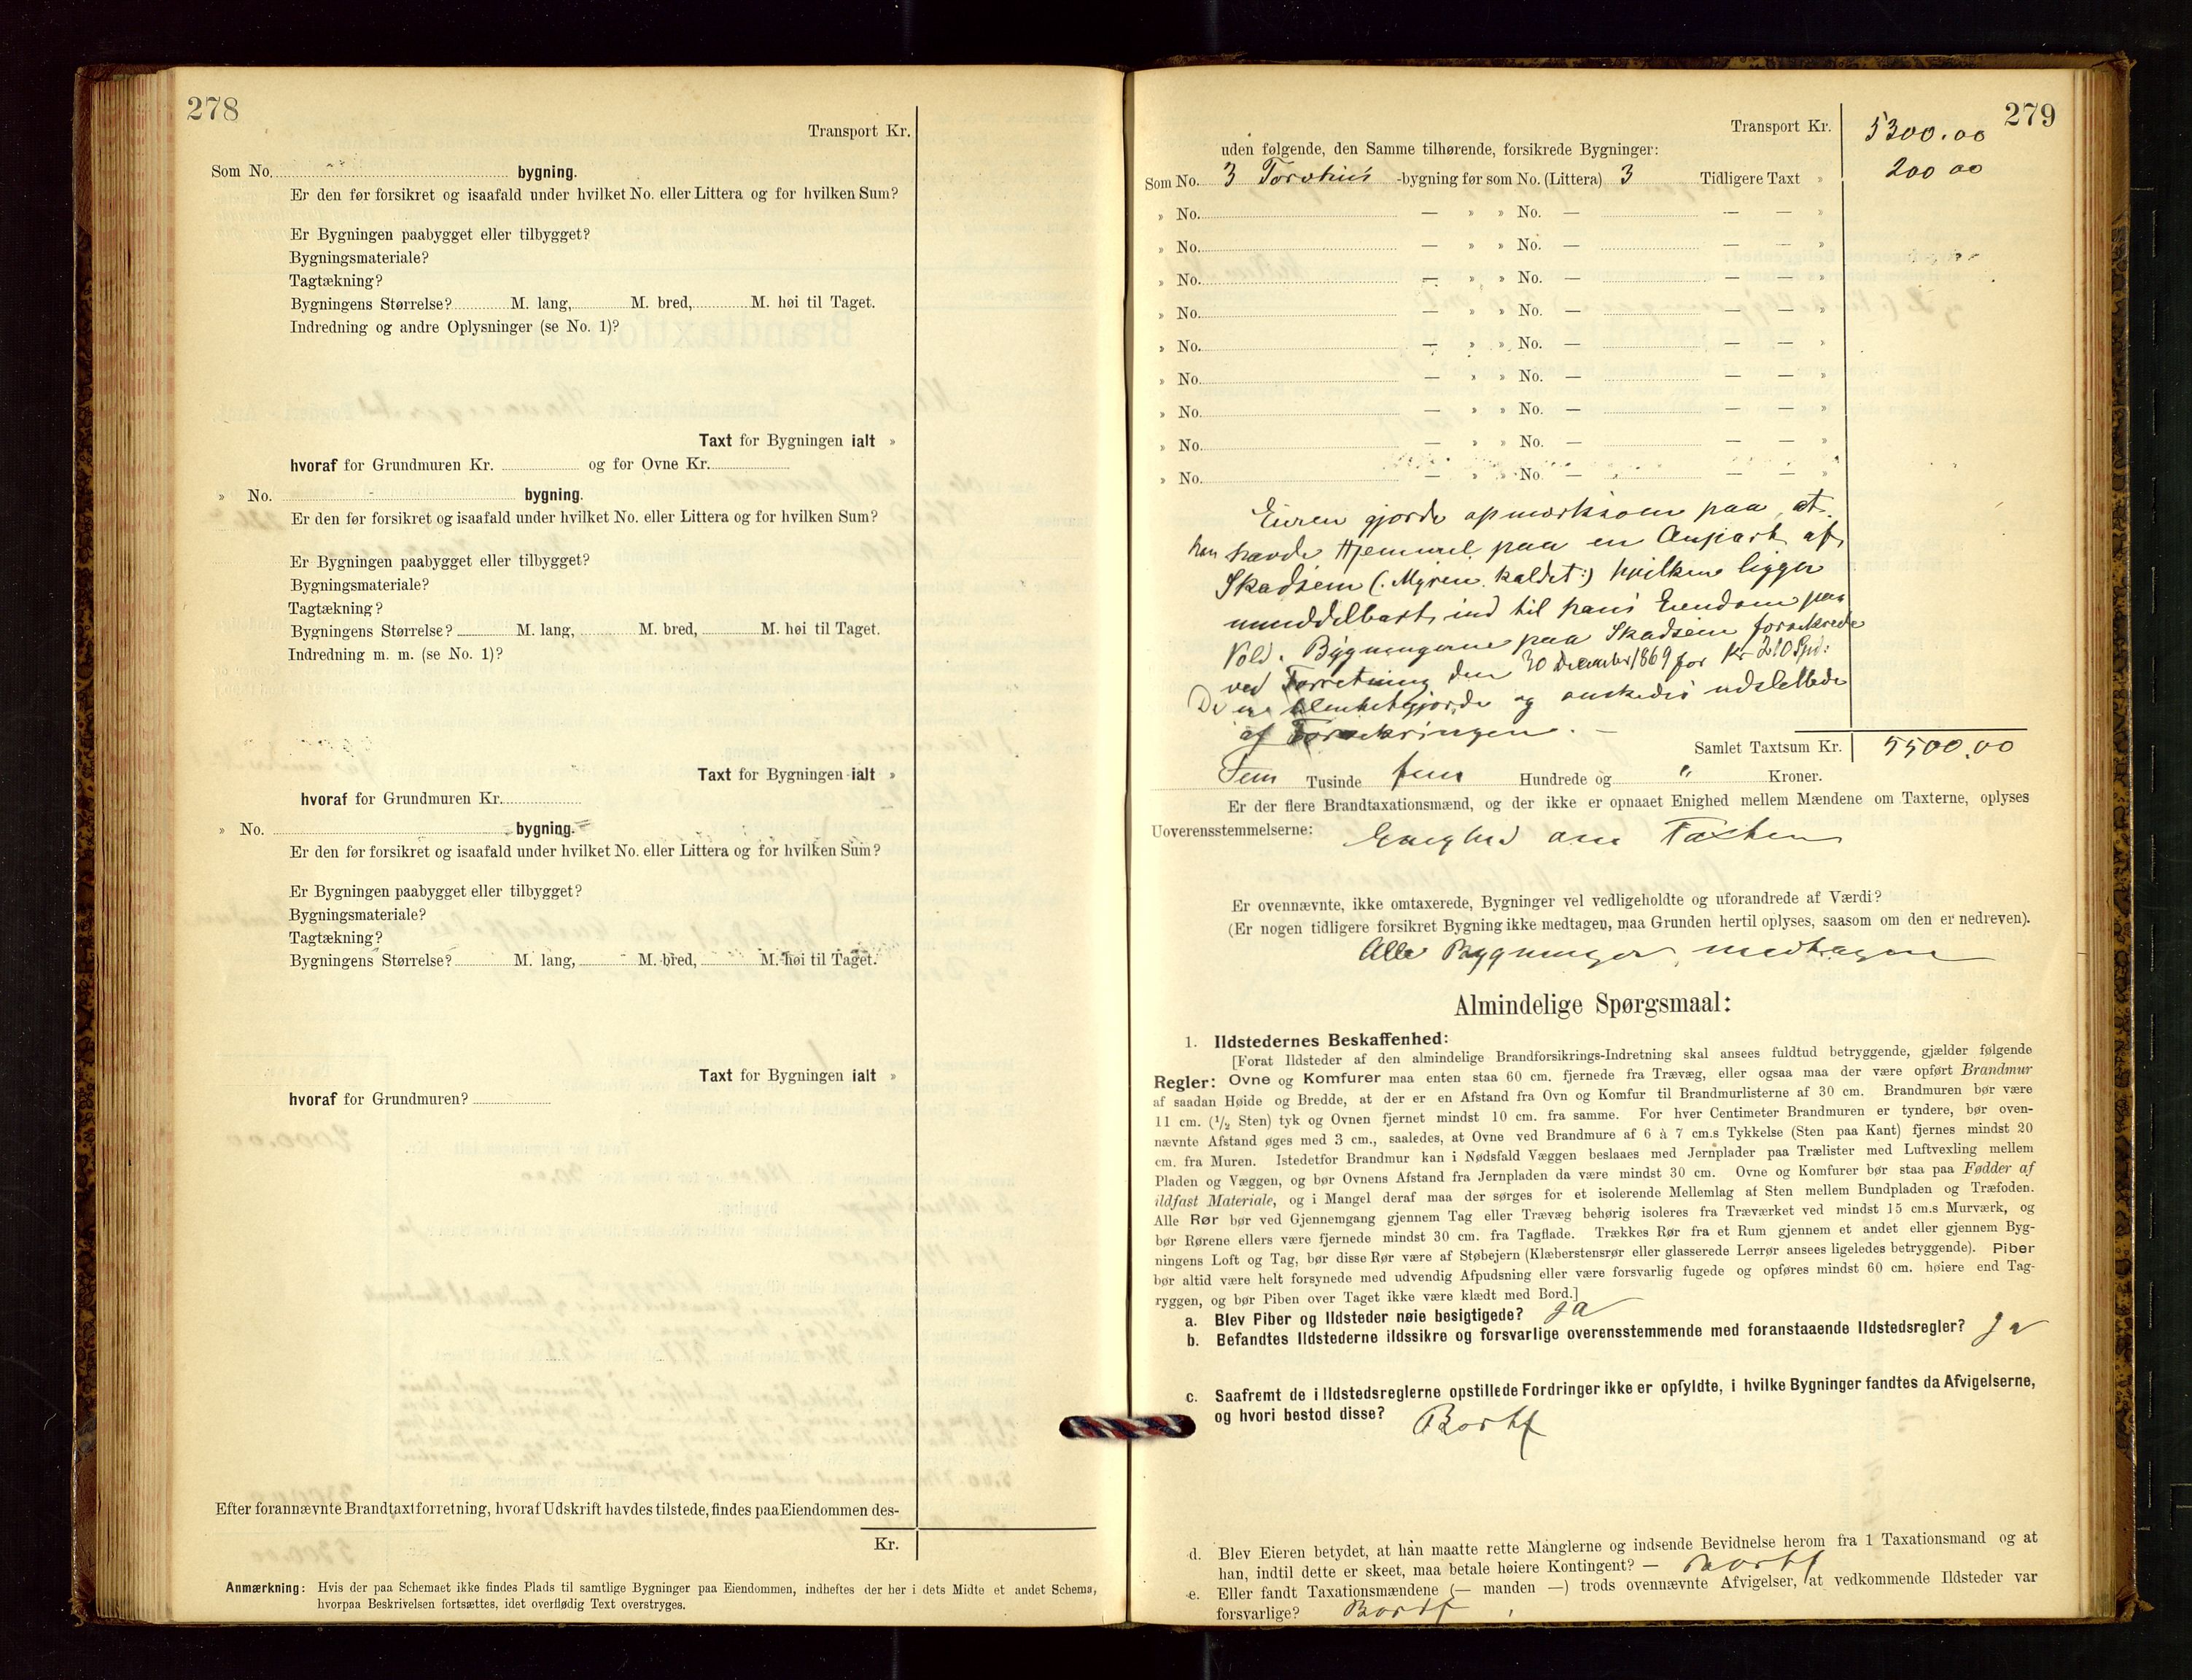 278
Transport Kr.
Som No. bygning.
Er den før forsikret og isaafald under hvilket No. eller Littera og for hvilken Sum?
Er Bygningen paabygget eller tilbygget?
Bygningsmateriale?
Tagtækning?
Bygningens Størrelse? M. lang, M. bred, M. høi til Taget.
Indredning og andre Oplysninger (se No. 1)?
Taxt for Bygningen ialt »
hvoraf for Grundmuren Kr. og for Ovne Kr.
» No. bygning.
Er den før forsikret og isaafald under hvilket No. eller Littera og for hvilken Sum?
Er Bygningen paabygget eller tilbygget?
Bygningsmateriale?
Tagtækning?
Bygningens Størrelse? M. lang, M. bred, M. høi til Taget.
Indredning m. m. (se No. 1)?
Taxt for Bygningen ialt »
hvoraf for Grundmuren Kr.
» No. bygning.
Er den før forsikret og isaafald under hvilket No. eller Littera og for hvilken Sum?
Er Bygningen paabygget eller tilbygget?
Bygningsmateriale?
Tagtækning?
Bygningens Størrelse? M. lang, M. bred, M. høi til Taget.
Taxt for Bygningen ialt »
hvoraf for Grundmuren?
Efter forannævnte Brandtaxtforretning, hvoraf Udskrift havdes tilstede, findes paa Eiendommen des-
Kr.
Anmærkning: Hvis der paa Schemaet ikke findes Plads til samtlige Bygninger paa Eiendommen, indheftes der her i dets Midte et andet Schema,
hvorpaa Beskrivelsen fortsættes, idet overflødig Text overstryges.
279
Transport Kr. 5300.00
uden følgende, den Samme tilhørende, forsikrede Bygninger:
Som No. 3 Torvhus -bygning før som No. (Littera) 3 Tidligere Taxt » 200 00
» No. — » » No. — — — »
» No. — » » No. — — — »
» No. — » » No. — — — »
» No. — » » No. — — — »
» No. — » » No. — — — »
» No. — » » No. — — — »
» No. — » » No. — — — »
» No. — » » No. — — — »
» No. — » » No. — — — »
Eieren gjorde opmærksom paa, at
han havde Hjemmel paa en Anpart af
Skadsem (: Myren kaldet :) hvilken ligger
umiddelbart ind til hans Eiendom paa
Vold. Bygningerne paa Skadsem forsikrede
ved Forretning den 30 December 1869 for Kr 210 Spd:
De er gjorde og ønskedes udslettede
af Forsikringen. —
Samlet Taxtsum Kr. 5500.00
Fem Tusinde fem Hundrede og " Kroner.
Er der flere Brandtaxationsmænd, og der ikke er opnaaet Enighed mellem Mændene om Taxterne, oplyses
Uoverensstemmelserne: Enighed om Taxten
Er ovennævnte, ikke omtaxerede, Bygninger vel vedligeholdte og uforandrede af Værdi?
(Er nogen tidligere forsikret Bygning ikke medtagen, maa Grunden hertil oplyses, saasom om den er nedreven).
Alle Bygninger medtagen
Almindelige Spørgsmaal:
1. Ildstedernes Beskaffenhed:
[Forat Ildsteder af den almindelige Brandforsikrings-Indretning skal ansees fuldtud betryggende, gjælder følgende
Regler: Ovne og Komfurer maa enten staa 60 cm. fjernede fra Trævæg, eller ogsaa maa der være opført Brandmur
af saadan Høide og Bredde, at der er en Afstand fra Ovn og Komfur til Brandmurlisterne af 30 cm. Brandmuren bør være
11 cm. (1/2 Sten) tyk og Ovnen fjernet mindst 10 cm. fra samme. For hver Centimeter Brandmuren er tyndere, bør oven-
nævnte Afstand øges med 3 cm., saaledes, at Ovne ved Brandmure af 6 à 7 cm.s Tykkelse (Sten paa Kant) fjernes mindst 20
cm. fra Muren. Istedetfor Brandmur kan i Nødsfald Væggen beslaaes med Jernplader paa Trælister med Luftvexling mellem
Pladen og Væggen, og bør Ovnens Afstand fra Jernpladen da være mindst 30 cm. Ovne og Komfurer bør staa paa Fødder af
ildfast Materiale, og i Mangel deraf maa der sørges for et isolerende Mellemlag af Sten mellem Bundpladen og Træfoden.
Alle Rør bør ved Gjennemgang gjennem Tag eller Trævæg behørig isoleres fra Træværket ved mindst 15 cm.s Murværk, og
bør Rørene ellers være fjernede mindst 30 cm. fra Tagflade. Trækkes Rør fra et Rum gjennem et andet eller gjennem Byg-
ningens Loft og Tag, bør disse Rør være af Støbejern (Klæberstensrør eller glasserede Lerrør ansees ligeledes betryggende). Piber
bør altid være helt forsynede med udvendig Afpudsning eller være forsvarlig fugede og opføres mindst 60 cm. høiere end Tag-
ryggen, og bør Piben over Taget ikke være klædt med Bord.]
a. Blev Piber og Ildsteder nøie besigtigede? ja
b. Befandtes Ildstederne ildssikre og forsvarlige overensstemmende med foranstaaende Ildstedsregler? Ja
c. Saafremt de i Ildstedsreglerne opstillede Fordringer ikke er opfyldte, i hvilke Bygninger fandtes da Afvigelserne,
og hvori bestod disse? Bortf
d. Blev Eieren betydet, at han maatte rette Manglerne og indsende Bevidnelse herom fra 1 Taxationsmand og at
han, indtil dette er skeet, maa betale høiere Kontingent? — Bortf
e. Eller fandt Taxationsmændene (— manden —) trods ovennævnte Afvigelser, at vedkommende Ildsteder var
forsvarlige? Bortf